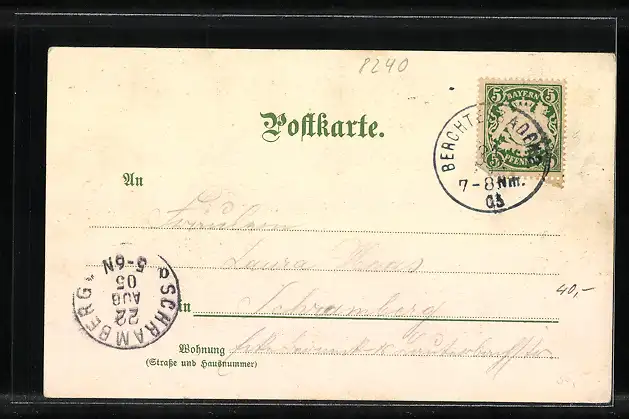 8240
Postkarte.
5 BAYERN 5
5 PFENNIG 5
BERCHTESGADEN
7-8 Nm.
05
An
Fräulein
Laura Haas
in Schramberg
SCHRAMBERG
22
AUG
05
5-6N
40,-
Wohnung
(Straße und Hausnummer)